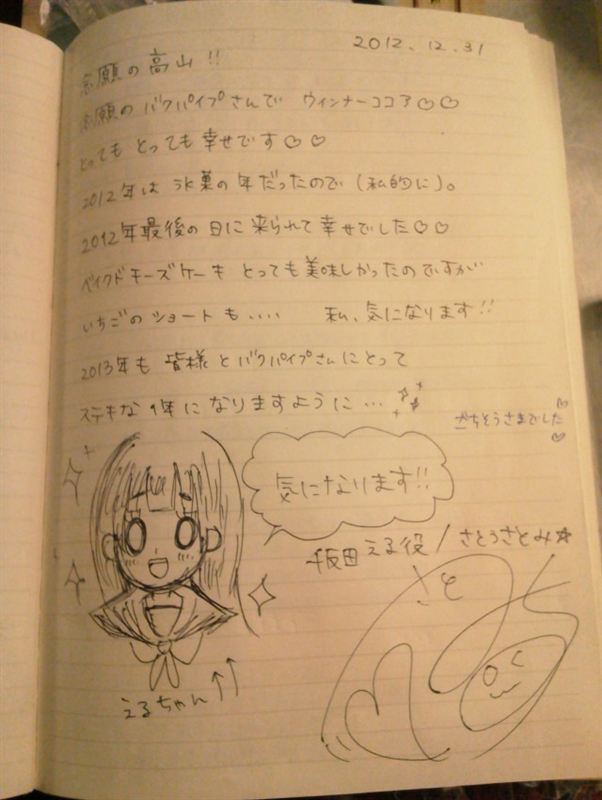 2012.12.31
念願の高山!!
念願のバグパイプさんで ウィンナーココア♡♡
とっても とっても幸せです♡♡
2012年は 氷菓の年だったので(私的に)。
2012年最後の日に来られて幸せでした♡♡
ベイクドチーズケーキ とっても美味しかったのですが
いちごのショートも・・・・ 私、気になります!!
2013年も 皆様とバグパイプさんにとって
ステキな1年になりますように…
ごちそうさまでした♡♡
気になります!!
千反田える役/さとうさとみ☆
えるちゃん↑↑